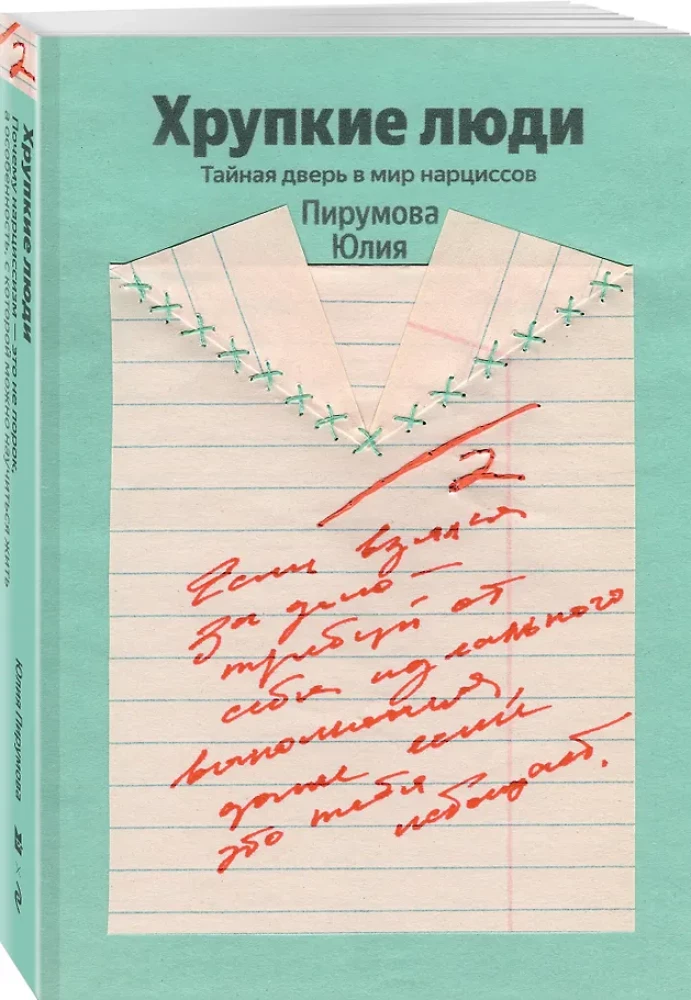 Хрупкие люди
Тайная дверь в мир нарциссов
Пирумова
Юлия
2
Если взялся
за дело —
требуй от
себя идеального
выполнения,
даже если
это тебя
2
Хрупкие люди
Почему нарциссизм — это не порок,
а особенность, с которой можно научиться жить
Юлия Пирумова